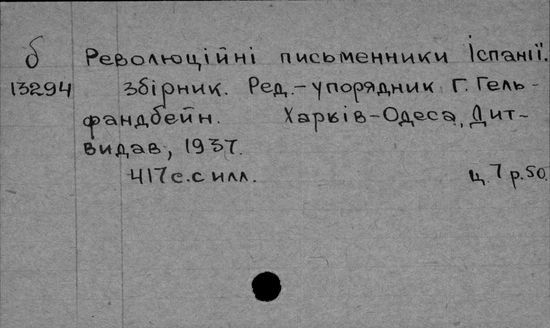 б Революційні письменники Іспанії.
13294 Збірник. Ред.-упорядник Г. Гель-
фандбейн. Харків-Одеса, Дит-
видав, 1937.
417 с. с илл. ц. 7 р. 50.